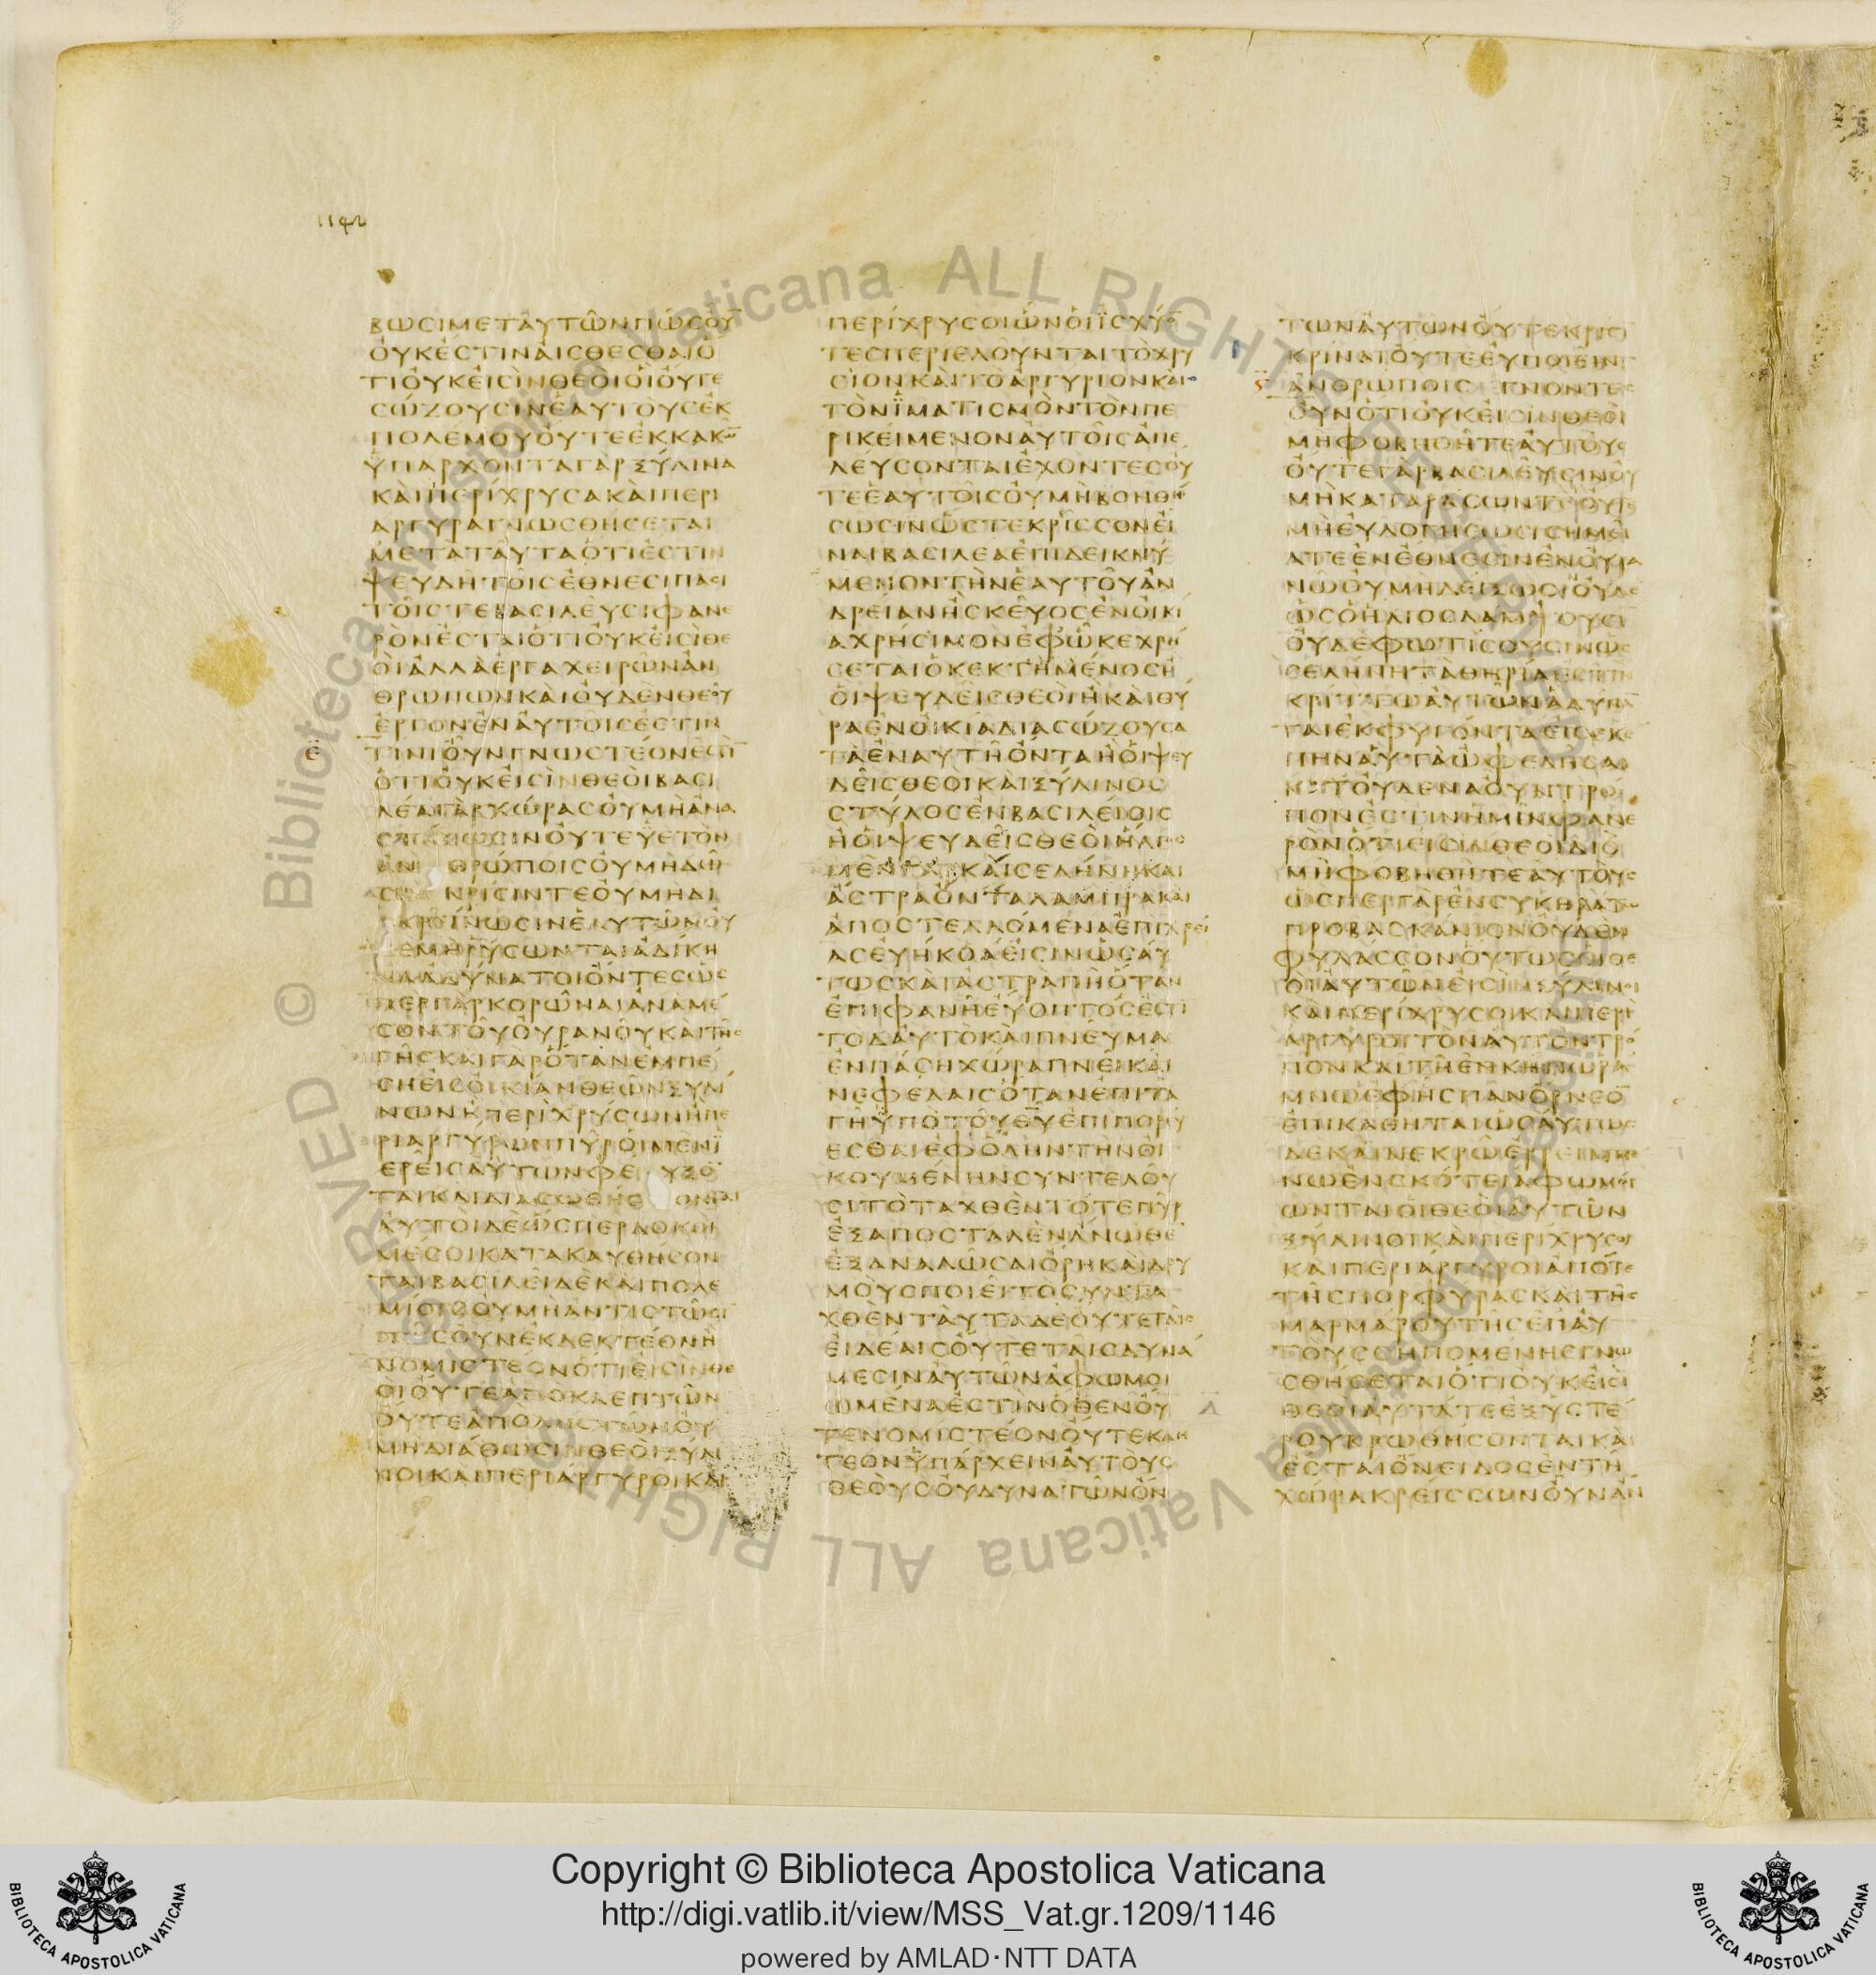 1142
ΒΩϹΙΜΕΤΑΥΤΩΝΠΩϹΟΥ̅
ΟΥΚΕϹΤΙΝΑΙϹΘΕϹΘΑΙΟ
ΤΙΟΥΚΕΙϹΙΝΘΕΟΙΟΙΟΥΤΕ
ϹΩΖΟΥϹΙΝΕΑΥΤΟΥϹΕΚ
ΠΟΛΕΜΟΥΟΥΤΕΕΚΚΑΚΩ̅
ΫΠΑΡΧΟΝΤΑΓΑΡΞΥΛΙΝΑ
ΚΑΙΠΕΡΙΧΡΥϹΑΚΑΙΠΕΡΙ
ΑΡΓΥΡΑΓΝΩϹΘΗϹΕΤΑΙ
ΜΕΤΑΤΑΥΤΑΟΤΙΕϹΤΙΝ
ΨΕΥΔΗΤΟΙϹΕΘΝΕϹΙΠΑϹΙ
ΤΟΙϹΤΕΒΑϹΙΛΕΥϹΙΦΑΝΕ
ΡΟΝΕϹΤΑΙΟΤΙΟΥΚΕΙϹΙΘΕ
ΟΙΑΛΛΑΕΡΓΑΧΕΙΡΩΝΑΝ
ΘΡΩΠΩΝΚΑΙΟΥΔΕΝΘΕΟΥ
ΕΡΓΟΝΕΝΑΥΤΟΙϹΕϹΤΙΝ
Ε̅ ΤΙΝΙΟΥΝΓΝΩϹΤΕΟΝΕϹΤΙ̅
ΟΤΙΟΥΚΕΙϹΙΝΘΕΟΙΒΑϹΙ
ΛΕΑΓΑΡΧΩΡΑϹΟΥΜΗΑΝΑ
ϹΤΗϹΩϹΙΝΟΥΤΕΥΕΤΟΝ
ΑΝΘΡΩΠΟΙϹΟΥΜΗΔΩ
ϹΙ ΚΡΙϹΙΝΤΕΟΥΜΗΔΙ
ΑΚΡΙΝΩϹΙΝΕΑΥΤΩΝΟΥ
ΔΕΜΗΡΥϹΩΝΤΑΙΑΔΙΚΗ
ΜΑΑΔΥΝΑΤΟΙΟΝΤΕϹΩϹ
ΠΕΡΓΑΡΚΟΡΩΝΑΙΑΝΑΜΕ
ϹΟΝΤΟΥΟΥΡΑΝΟΥΚΑΙΤΗϹ
ΓΗϹΚΑΙΓΑΡΟΤΑΝΕΜΠΕ
ϹΗΕΙϹΟΙΚΙΑΝΘΕΩΝΞΥΛΙ
ΝΩΝΗΠΕΡΙΧΡΥϹΩΝΗΠΕ
ΡΙΑΡΓΥΡΩΝΠΥΡΟΙΜΕΝΪ
ΕΡΕΙϹΑΥΤΩΝΦΕΥΞΟ̅
ΤΑΙΚΑΙΔΙΑϹΩΘΗϹΟΝΤΑΙ
ΑΥΤΟΙΔΕΩϹΠΕΡΔΟΚΟΙ
ΜΕϹΟΙΚΑΤΑΚΑΥΘΗϹΟΝ
ΤΑΙΒΑϹΙΛΕΙΔΕΚΑΙΠΟΛΕ
ΜΙΟΙϹΟΥΜΗΑΝΤΙϹΤΩϹΙ
ΠΩϹΟΥΝΕΚΔΕΚΤΕΟΝΗ
ΝΟΜΙϹΤΕΟΝΟΤΙΕΙϹΙΝΘΕ
ΟΙΟΥΤΕΑΠΟΚΛΕΠΤΩΝ
ΟΥΤΕΑΠΟΛΗϹΤΩΝΟΥ
ΜΗΔΙΑΘΩϹΙΝΘΕΟΙΞΥΛΙ
ΝΟΙΚΑΙΠΕΡΙΑΡΓΥΡΟΙΚΑΙ
ΠΕΡΙΧΡΥϹΟΙΩΝΟΙΪϹΧΥΟ̅
ΤΕϹΠΕΡΙΕΛΟΥΝΤΑΙΤΟΧΡΥ
ϹΙΟΝΚΑΙΤΟΑΡΓΥΡΙΟΝΚΑΙ
ΤΟΝΪΜΑΤΙϹΜΟΝΤΟΝΠΕ
ΡΙΚΕΙΜΕΝΟΝΑΥΤΟΙϹΑΠΕ
ΛΕΥϹΟΝΤΑΙΕΧΟΝΤΕϹΟΥ
ΤΕΕΑΥΤΟΙϹΟΥΜΗΒΟΗΘΗ
ϹΩϹΙΝΩϹΤΕΚΡΙϹϹΟΝΕΙ
ΝΑΙΒΑϹΙΛΕΑΕΠΙΔΕΙΚΝΥ
ΜΕΝΟΝΤΗΝΕΑΥΤΟΥΑΝ
ΔΡΕΙΑΝΗϹΚΕΥΟϹΕΝΟΙΚΙ
ΑΧΡΗϹΙΜΟΝΕΦΩΚΕΧΡΗ
ϹΕΤΑΙΟΚΕΚΤΗΜΕΝΟϹΗ
ΟΙΨΕΥΔΕΙϹΘΕΟΙΗΚΑΙΘΥ
ΡΑΕΝΟΙΚΙΑΔΙΑϹΩΖΟΥϹΑ
ΤΑΕΝΑΥΤΗΟΝΤΑΗΟΙΨΕΥ
ΔΕΙϹΘΕΟΙΚΑΙΞΥΛΙΝΟϹ
ϹΤΥΛΟϹΕΝΒΑϹΙΛΕΙΟΙϹ
ΗΟΙΨΕΥΔΕΙϹΘΕΟΙΗΛΙΟϹ
ΜΕΝΓΑΡΚΑΙϹΕΛΗΝΗΚΑΙ
ΑϹΤΡΑΟΝΤΑΛΑΜΠΡΑΚΑΙ
ΑΠΟϹΤΕΛΛΟΜΕΝΑΕΠΙΧΡΕΙ
ΑϹΕΥΗΚΟΑΕΙϹΙΝΩϹΑΥ
ΤΩϹΚΑΙΑϹΤΡΑΠΗΟΤΑΝ
ΕΠΙΦΑΝΗΕΥΟΠΤΟϹΕϹΤΙ
ΤΟΔΑΥΤΟΚΑΙΠΝΕΥΜΑ
ΕΝΠΑϹΗΧΩΡΑΠΝΕΙΚΑΙ
ΝΕΦΕΛΑΙϹΟΤΑΝΕΠΙΤΑ
ΓΗΫΠΟΤΟΥΘ̅Υ̅ΕΠΙΠΟΡΕΥ
ΕϹΘΑΙΕΦΟΛΗΝΤΗΝΟΙ
ΚΟΥΜΕΝΗΝϹΥΝΤΕΛΟΥ
ϹΙΤΟΤΑΧΘΕΝΤΟΤΕΠΥΡ
ΕΞΑΠΟϹΤΑΛΕΝΑΝΩΘΕ̅
ΕΞΑΝΑΛΩϹΑΙΟΡΗΚΑΙΔΡΥ
ΜΟΥϹΠΟΙΕΙΤΟϹΥΝΤΑ
ΧΘΕΝΤΑΥΤΑΔΕΟΥΤΕΤΑΙϹ
ΕΙΔΕΑΙϹΟΥΤΕΤΑΙϹΔΥΝΑ
ΜΕϹΙΝΑΥΤΩΝΑΦΩΜΟΙ
ΩΜΕΝΑΕϹΤΙΝΟΘΕΝΟΥ
ΤΕΝΟΜΙϹΤΕΟΝΟΥΤΕΚΛΗ
ΤΕΟΝΫΠΑΡΧΕΙΝΑΥΤΟΥϹ
ΘΕΟΥϹΟΥΔΥΝΑΤΩΝΟΝ
ΤΩΝΑΥΤΩΝΟΥΤΕΚΡΙϹΙ̅
ΚΡΙΝΑΙΟΥΤΕΕΥΠΟΙΕΙΝ
Ϛ̅ ΑΝΘΡΩΠΟΙϹ ΓΝΟΝΤΕϹ
ΟΥΝΟΤΙΟΥΚΕΙϹΙΝΘΕΟΙ
ΜΗΦΟΒΗΘΗΤΕΑΥΤΟΥϹ
ΟΥΤΕΓΑΡΒΑϹΙΛΕΥϹΙΝΟΥ
ΜΗΚΑΤΑΡΑϹΩΝΤΑΙΟΥΤΕ
ΜΗΕΥΛΟΓΗϹΩϹΙϹΗΜΕΙ
ΑΤΕΕΝΕΘΝΕϹΙΝΕΝΟΥΡΑ
ΝΩΟΥΜΗΔΕΙΞΩϹΙΟΥΔΕ
ΩϹΟΗΛΙΟϹΛΑΜΨΟΥϹΙ̅
ΟΥΔΕΦΩΤΙϹΟΥϹΙΝΩϹ
ϹΕΛΗΝΗΤΑΘΗΡΙΑΕϹΤΙΝ
ΚΡΙΤΤΩΑΥΤΩΝΑΔΥΝΑ
ΤΑΙΕΚΦΥΓΟΝΤΑΕΙϹϹΚΕ
ΠΗΝΑΥΤΑΩΦΕΛΗϹΑΙ
ΚΑΤΟΥΔΕΝΑΟΥΝΤΡΟ
ΠΟΝΕϹΤΙΝΗΜΙΝΦΑΝΕ
ΡΟΝΟΤΙΕΙϹΙΝΘΕΟΙΔΙΟ
ΜΗΦΟΒΗΘΗΤΕΑΥΤΟΥϹ
ΩϹΠΕΡΓΑΡΕΝϹΥΚΗΡΑΤΩ
ΠΡΟΒΑϹΚΑΝΙΟΝΟΥΔΕΝ
ΦΥΛΑϹϹΟΝΟΥΤΩϹΟΙΘΕ
ΟΙΑΥΤΩΝΕΙϹΙΝΞΥΛΙΝΟΙ
ΚΑΙΠΕΡΙΧΡΥϹΟΙΚΑΙΠΕΡΙ
ΑΡΓΥΡΟΙΤΟΝΑΥΤΟΝΤΡΟ
ΠΟΝΚΑΙΤΗΕΝΚΗΠΩΡΑ
ΜΝΩΕΦΗϹΠΑΝΟΡΝΕΟ̅
ΕΠΙΚΑΘΗΤΑΙΩϹΑΥΤΩϹ
ΔΕΚΑΙΝΕΚΡΩΕΡΡΙΜΜΕ
ΝΩΕΝϹΚΟΤΕΙΑΦΩΜΟΙ
ΩΝΤΑΙΟΙΘΕΟΙΑΥΤΩΝ
ΞΥΛΙΝΟΙΚΑΙΠΕΡΙΧΡΥϹΟΙ
ΚΑΙΠΕΡΙΑΡΓΥΡΟΙΑΠΟΤΕ
ΤΗϹΠΟΡΦΥΡΑϹΚΑΙΤΗϹ
ΜΑΡΜΑΡΟΥΤΗϹΕΠΑΥ
ΤΟΥϹϹΗΠΟΜΕΝΗϹΓΝΩ
ϹΘΗϹΕΤΑΙΟΤΙΟΥΚΕΙϹΙ
ΘΕΟΙΑΥΤΑΤΕΕΞΥϹΤΕ
ΡΟΥΒΡΩΘΗϹΟΝΤΑΙΚΑΙ
ΕϹΤΑΙΟΝΕΙΔΟϹΕΝΤΗ
ΧΩΡΑΚΡΕΙϹϹΩΝΟΥΝΑΝ
© Biblioteca Apostolica Vaticana ALL RIGHTS RESERVED
Copyright © Biblioteca Apostolica Vaticana
http://digi.vatlib.it/view/MSS_Vat.gr.1209/1146
powered by AMLAD·NTT DATA
BIBLIOTECA APOSTOLICA VATICANA
BIBLIOTECA APOSTOLICA VATICANA